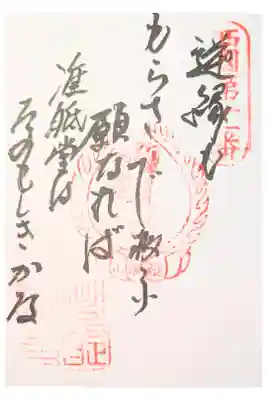 西国第十一番
逆縁も
もらさで救ふ
願なれば
准胝堂は
たのもしきかな